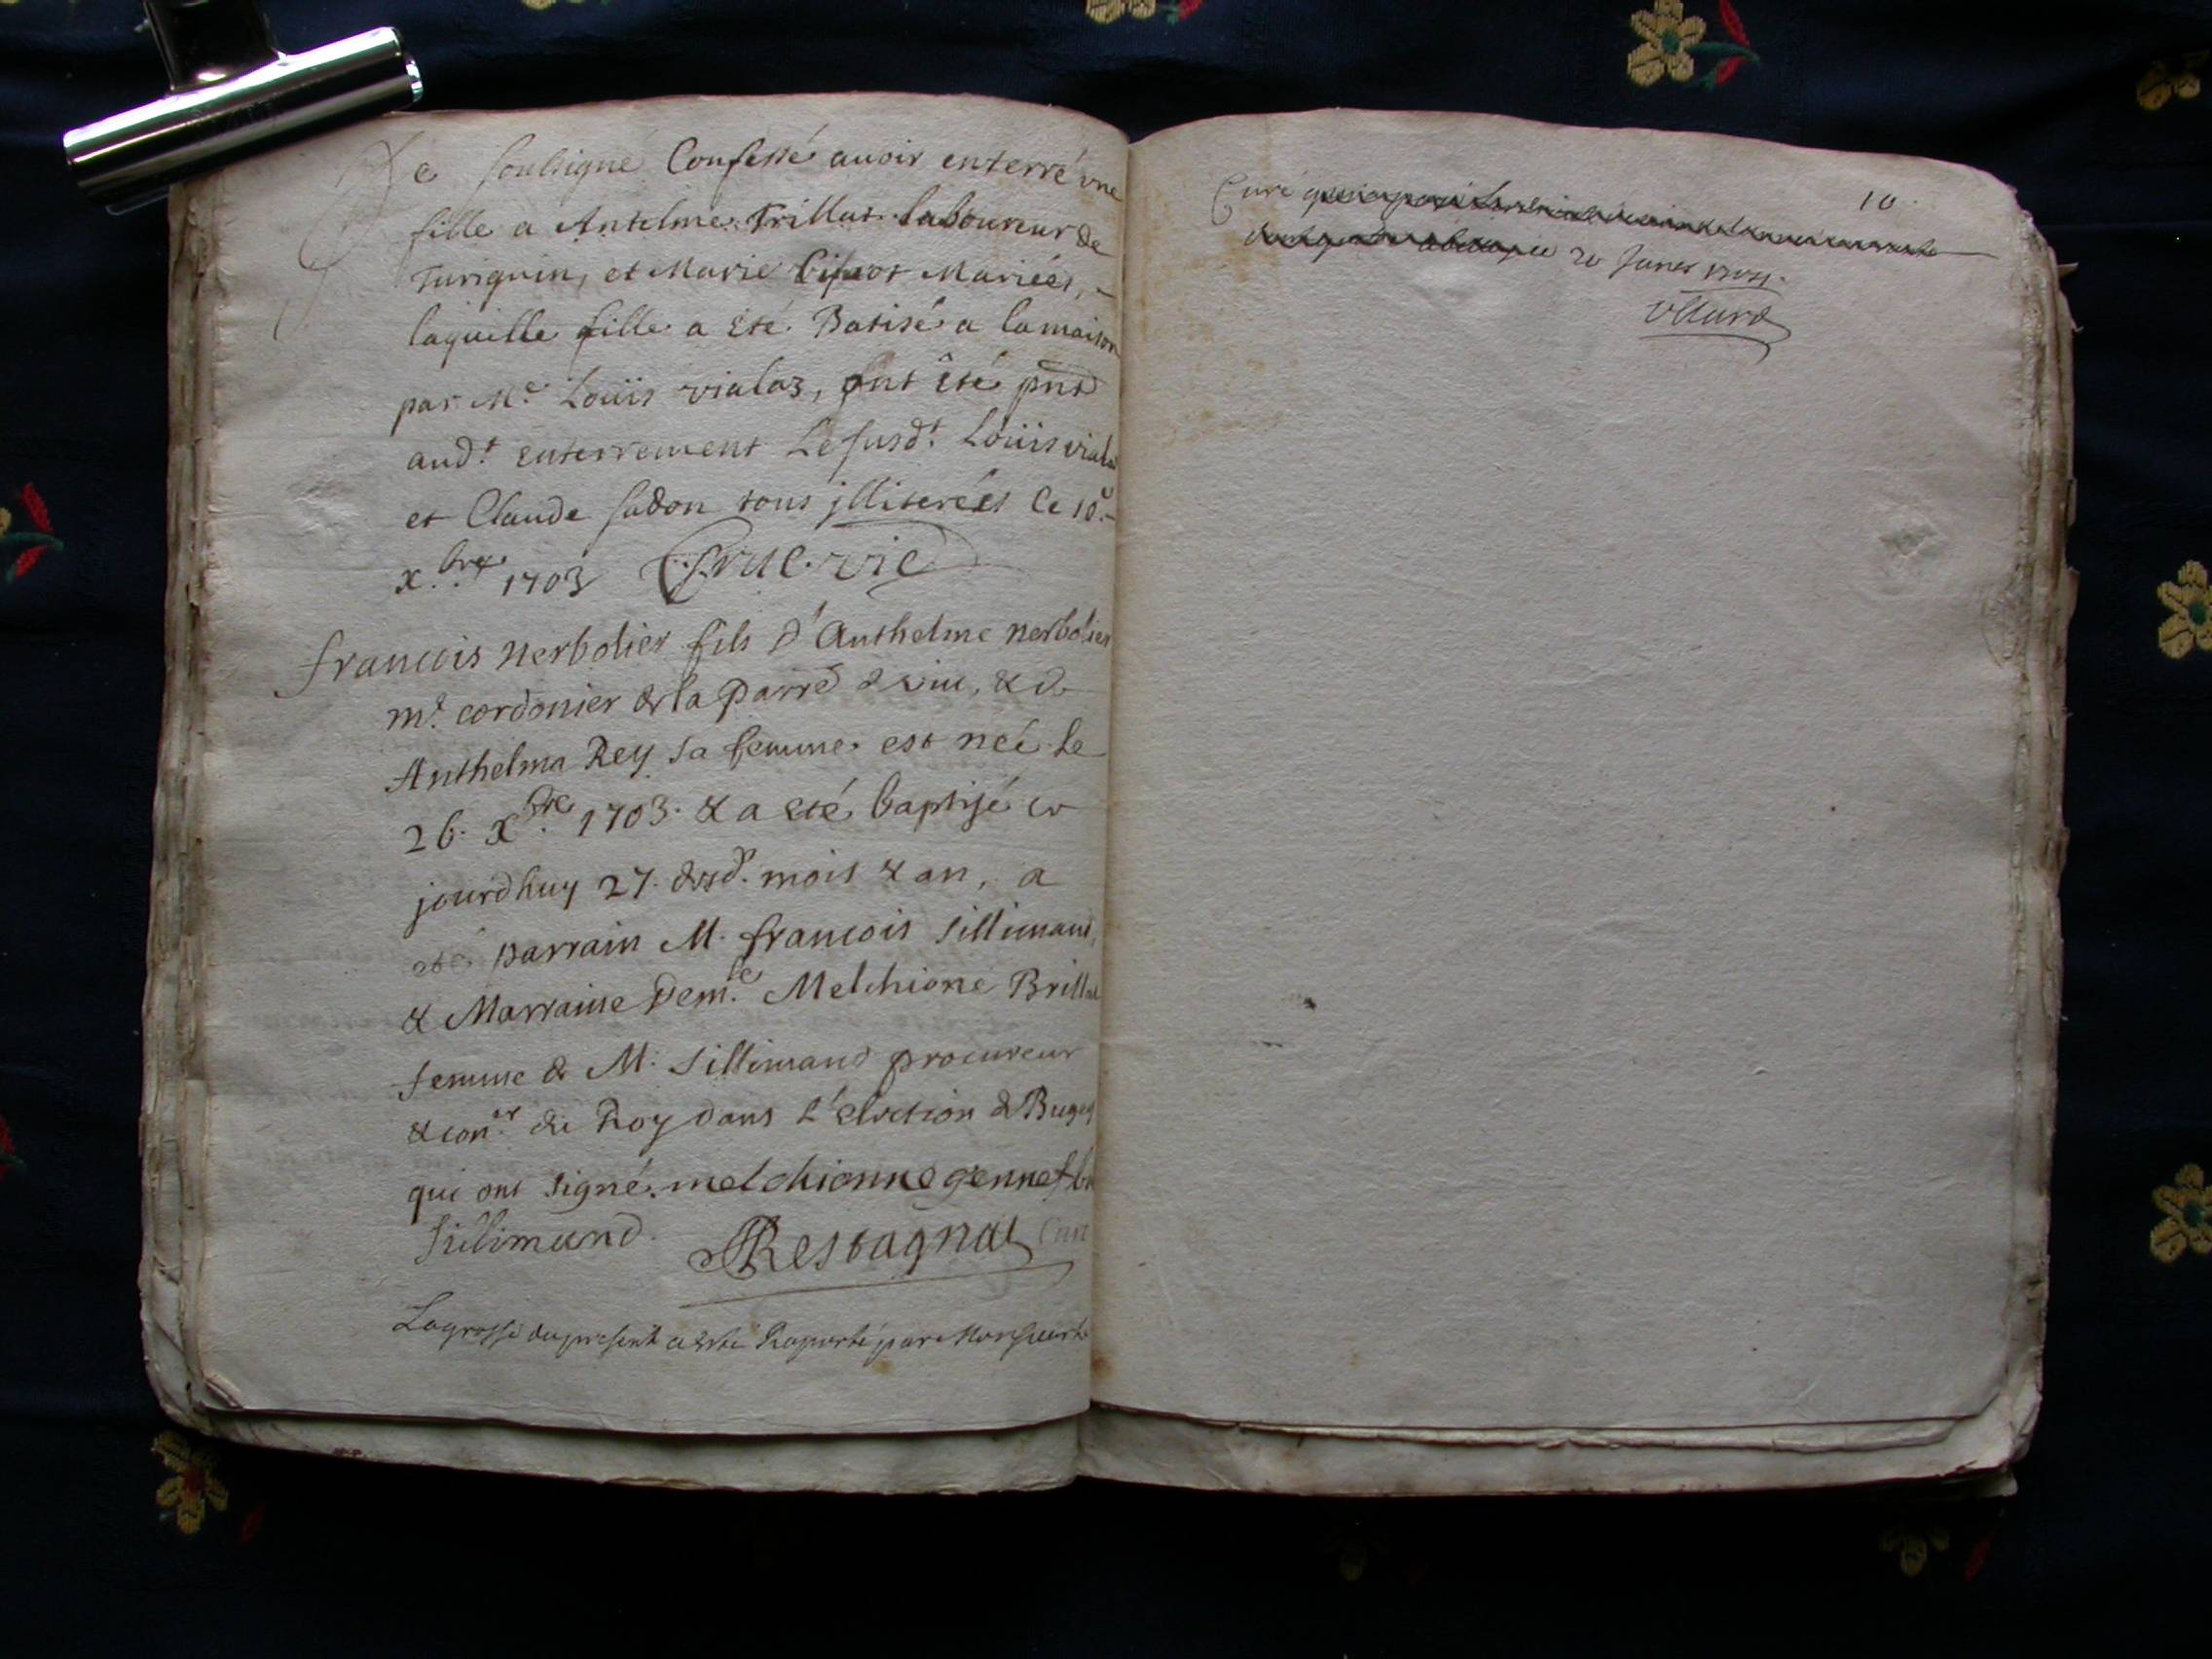 Je soubsigné Confesse avoir enterré une
fille a Antelme Trillat laboureur de
Turignin, et Marie Mariées,
laquelle fille a été Batisé a la maison
par Me Loüis vialaz, ont êté pnt
audt enterrement Le susdt Loüis viala
et Claude sadon tous jlliterées Ce 10e
xbre 1703
francois nerbolier fils d'Anthelme nerbolier
me cordonier de la parre & de
Anthelma Rey sa femme est neé le
26. xbre 1703. & a eté baptisé ce
jourdhuy 27. dusd. mois & an, a
eté parrain M. francois sillimand,
& Marraine demle Melchione Brillat
femme de M. sillimand procureur
& coner du Roy dans l'election de Bugey
qui ont signé. melchionne gennet
sillimand Restagnat Curé
La grosse du present a esté Raporté par Monsieur le
Curé 10.
20 Janer 1704.